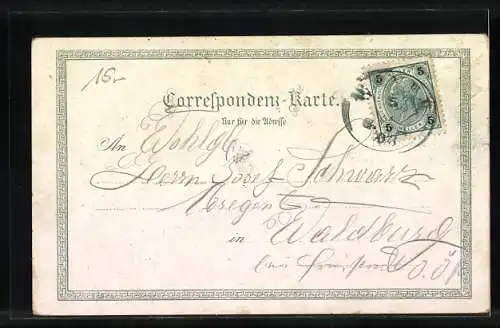 15.-
Correspondenz-Karte.
Nur für die Adresse
5 5
5 HELLER 5
An Wohlgb
Herrn Josef Schwarz
in Waldburg
bei O. Ö.